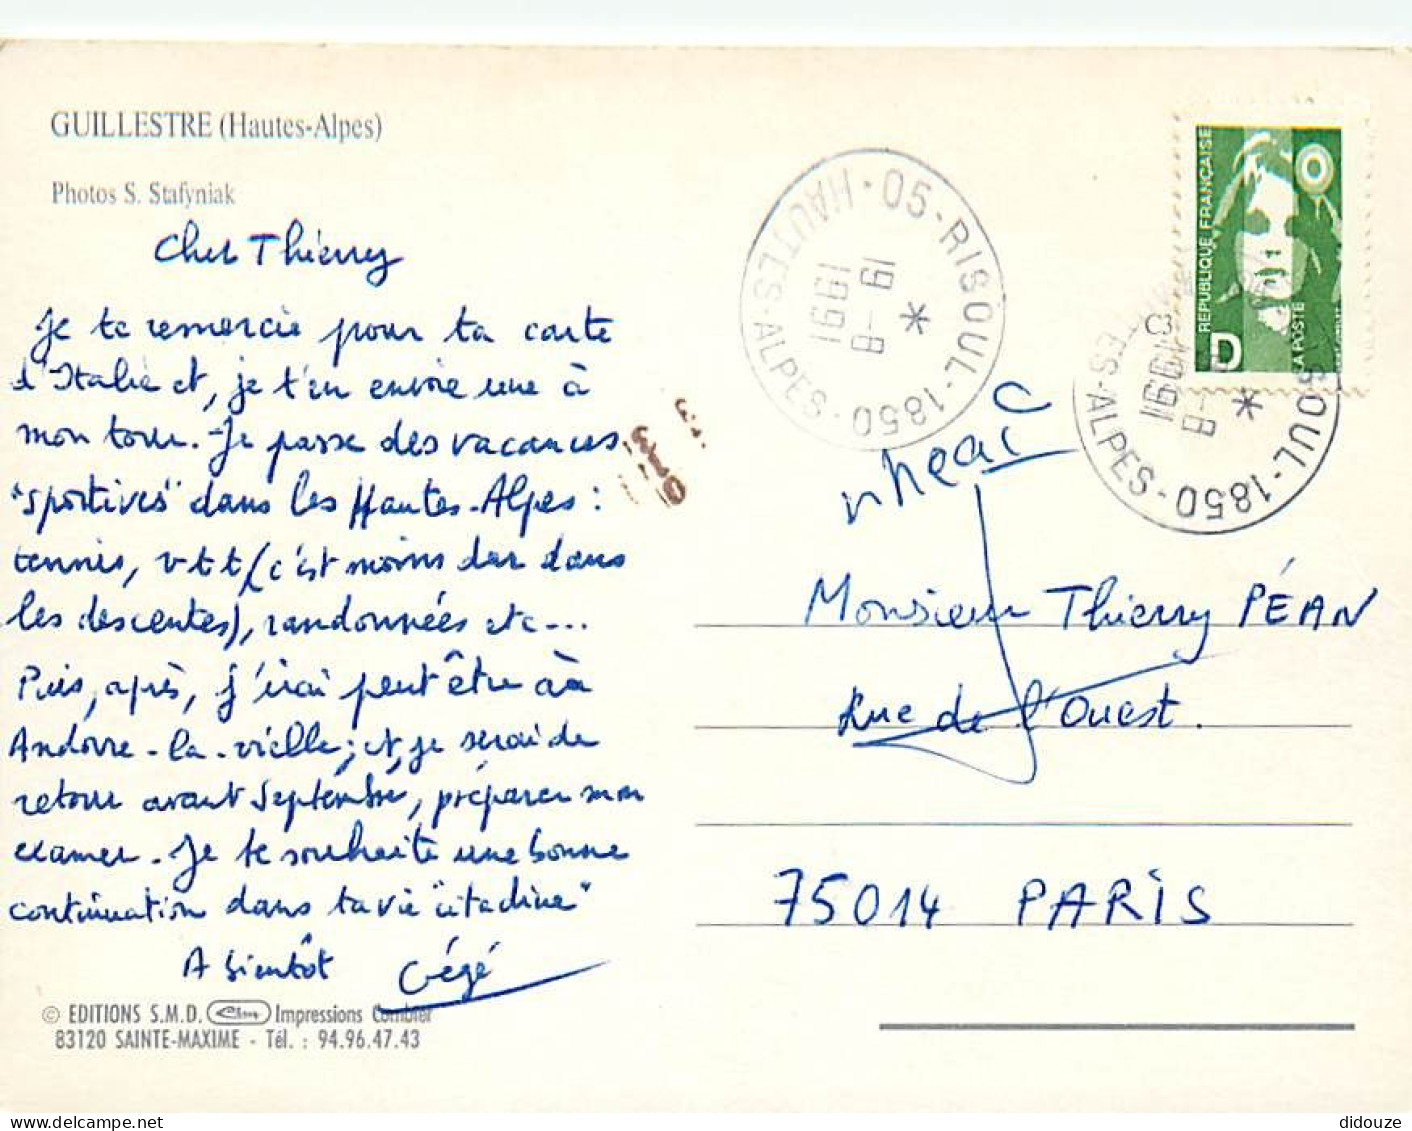 GUILLESTRE (Hautes-Alpes)
Photos S. Stafyniak
Cher Thierry
Je te remercie pour ta carte
d'Italie et, je t'en envoie une à
mon tour. Je passe des vacances
"sportives" dans les Hautes-Alpes :
tennis, v-t-t (c'est moins dur dans
les descentes), randonnées etc...
Puis, après, j'irai peut être à
Andorre-la-vielle; et, je serai de
retour avant Septembre, préparer mon
examen. Je te souhaite une bonne
continuation dans ta vie "citadine"
A bientôt Gégé
© EDITIONS S.M.D. Cim Impressions Combier
83120 SAINTE-MAXIME - Tél. : 94.96.47.43
05-RISOUL-1850-HAUTES-ALPES-
19-8
1991
*
REPUBLIQUE FRANÇAISE
LA POSTE
D
SOUL-1850-
TES-ALPES-
-8
1991
*
Monsieur Thierry PÉAN
Rue de l'Ouest.
75014 PARIS
didouze
www.delcampe.net